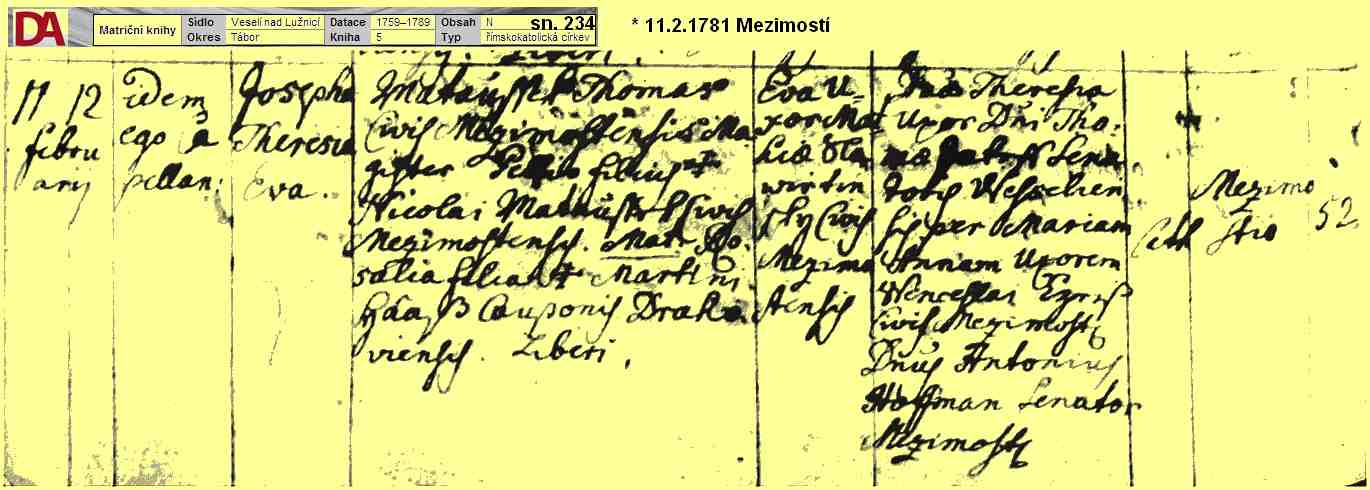 DA Matriční knihy Sídlo Veselí nad Lužnicí Datace 1759–1789 Obsah N sn. 234
Okres Tábor Kniha 5 Typ římskokatolická církev
* 11.2.1781 Mezimostí
11 12
febru
arij
idem
ego
pellan:
Josepha
Theresia
Eva.
Thomas
Civis Mezimostensis Ma
gister filius
Nicolai Civis
Mezimostensis. Mat: Ro
salia filia Martini
Haaß Cauponis Draho
viensis. Liberi,
Eva U=
xor Mat
wirtin
sky Civis
Mezimo
stensis
Theresia
Uxor Dni Tho:
mæ Sena
toris Wesselien
sis per Mariam
Annam Uxorem
Wenceslai
Civis Mezimost:
Dnus Antonius
Hoffman Senator
Mezimost:
Cath
Mezimo
stio
52.